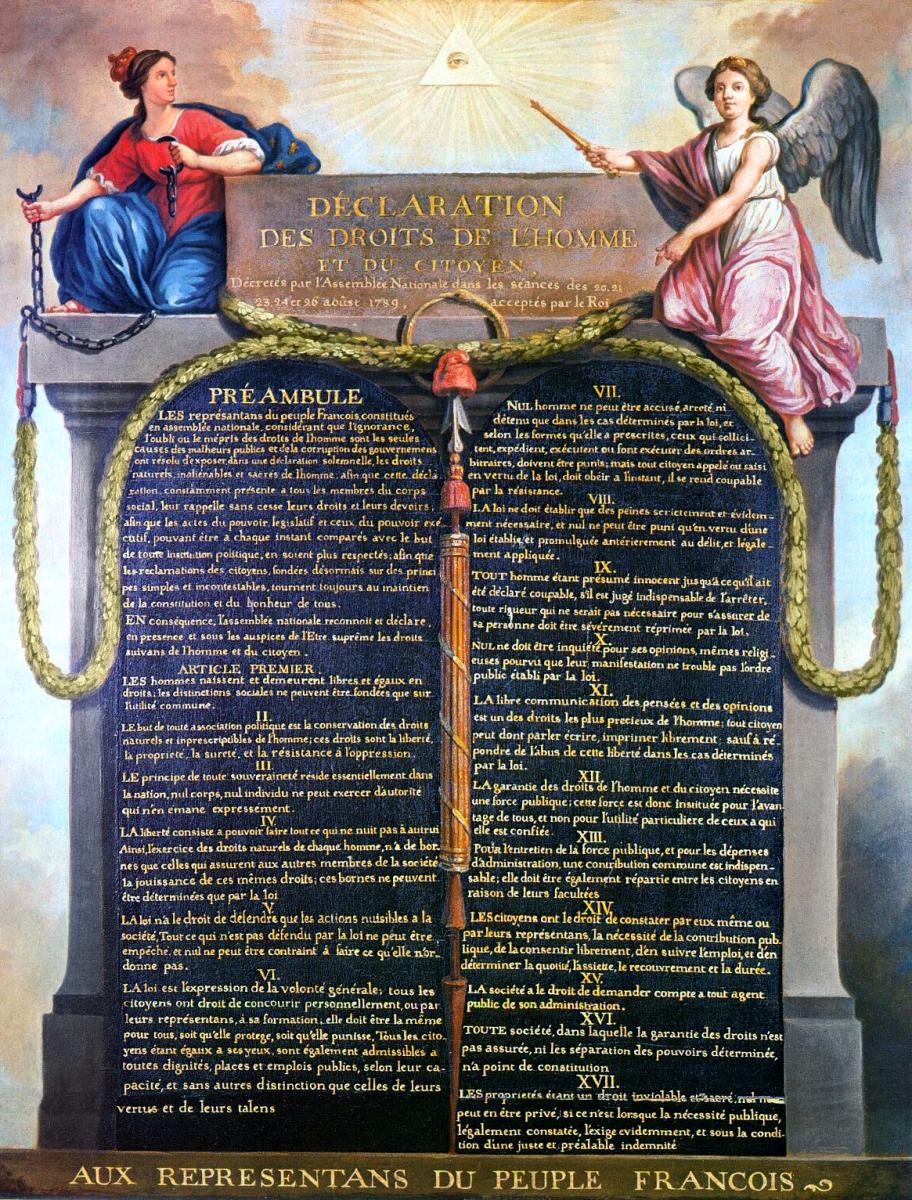 DÉCLARATION
DES DROITS DE L'HOMME
ET DU CITOYEN,
Décretés par l'Assemblée Nationale dans les séances des 20. 21
23. 24 et 26 aoûst 1789, acceptés par le Roi
PRÉAMBULE
LES représantans du peuple François, constitués
en assemblée nationale, considérant que l'ignorance,
l'oubli ou le mépris des droits de l'homme sont les seules
causes des malheurs publics et de la corruption des gouvernemens
ont résolu d'exposer dans une déclaration solemnelle, les droits
naturels, inaliénables et sacrés de l'homme; afin que cette décla
ration, constamment présente a tous les membres du corps
social, leur rappelle sans cesse leurs droits et leurs devoirs,
afin que les actes du pouvoir legislatif et ceux du pouvoir exé
cutif, pouvant être a chaque instant comparés avec le but
de toute institution politique, en soient plus respectés; afin que
les reclamations des citoyens, fondées désormais sur des princi
pes simples et incontestables, tournent toujours au maintien
de la constitution et du bonheur de tous.
EN conséquence, l'assemblée nationale reconnoit et déclare,
en presence et sous les auspices de l'Etre suprême les droits
suivans de l'homme et du citoyen.
ARTICLE PREMIER.
LES hommes naissent et demeurent libres et égaux en
droits; les distinctions sociales ne peuvent être fondées que sur
l'utilité commune.
II.
LE but de toute association politique est la conservation des droits
naturels et inprescriptibles de l'homme; ces droits sont la liberté,
la propriete, la sureté, et la résistance à l'oppression.
III.
LE principe de toute souveraineté réside essentiellement dans
la nation, nul corps, nul individu ne peut exercer d'autorité
qui n'en emane expressement.
IV.
LA liberté consiste a pouvoir faire tout ce qui ne nuit pas à autrui
Ainsi, l'exercice des droits naturels de chaque homme, n'a de bor
nes que celles qui assurent aux autres membres de la société
la jouissance de ces mêmes droits; ces bornes ne peuvent
être déterminées que par la loi
V.
LA loi n'a le droit de défendre que les actions nuisibles a la
société, Tout ce qui n'est pas défendu par la loi ne peut être
empêché, et nul ne peut être contraint à faire ce qu'elle n'or-
donne pas.
VI.
LA loi est l'expression de la volonté générale; tous les
citoyens ont droit de concourir personnellement, ou par
leurs représentans, à sa formation; elle doit être la même
pour tous, soit qu'elle protege, soit qu'elle punisse, Tous les cito-
yens étant égaux a ses yeux, sont également admissibles à
toutes dignités, places et emplois publics, selon leur ca-
pacité, et sans autres distinction que celles de leurs
vertus et de leurs talens
VII.
NUL homme ne peut être accusé, arreté, ni
détenu que dans les cas déterminés par la loi, et
selon les formes qu'elle a prescrites, ceux qui sollici-
tent, expédient, exécutent ou font exécuter des ordres ar-
bitraires, doivent être punis; mais tout citoyen appelé ou saisi
en vertu de la loi, doit obéir a l'instant, il se rend coupable
par la résistance.
VIII.
LA loi ne doit établir que des peines strictement et évidem-
ment nécessaire, et nul ne peut être puni qu'en vertu d'une
loi établie et promulguée antérierement au délit, et légale-
ment appliquée.
IX.
TOUT homme étant présumé innocent jusqu'à ce qu'il ait
été déclaré coupable, s'il est jugé indispensable de l'arrêter,
toute rigueur qui ne serait pas nécessaire pour s'assurer de
sa personne doit être sévèrement réprimée par la loi.
X.
NUL ne doit être inquiété pour ses opinions, mêmes religi-
euses pourvu que leur manifestation ne trouble pas l'ordre
public établi par la loi.
XI.
LA libre communication des pensées et des opinions
est un des droits les plus precieux de l'homme; tout citoyen
peut dont parler écrire, imprimer librement: sauf à ré-
pondre de l'abus de cette liberté dans les cas déterminés
par la loi.
XII.
LA garantie des droits de l'homme et du citoyen nécessite
une force publique; cette force est donc instituée pour l'avan-
tage de tous, et non pour l'utilité particuliere de ceux a qui
elle est confiée.
XIII.
POUR l'entretien de la force publique, et pour les dépenses
d'administration, une contribution commune est indispen-
sable; elle doit être également répartie entre les citoyens en
raison de leurs facultées
XIV.
LES citoyens ont le droit de constater par eux même ou
par leurs représentans, la nécessité de la contribution pub-
lique, de la consentir librement, d'en suivre l'emploi, et d'en
déterminer la quotité, l'assiette, le recouvrement et la durée.
XV.
LA société a le droit de demander compte a tout agent
public de son administration.
XVI.
TOUTE société, dans laquelle la garantie des droits n'est
pas assurée, ni les séparation des pouvoirs déterminée,
n'a point de constitution
XVII.
LES proprietés étant un droit inviolable et sacré, nul ne
peut en être privé, si ce n'est lorsque la nécessité publique,
légalement constatée, l'exige evidemment, et sous la condi-
tion d'une juste et préalable indemnité
AUX REPRESENTANS DU PEUPLE FRANCOIS